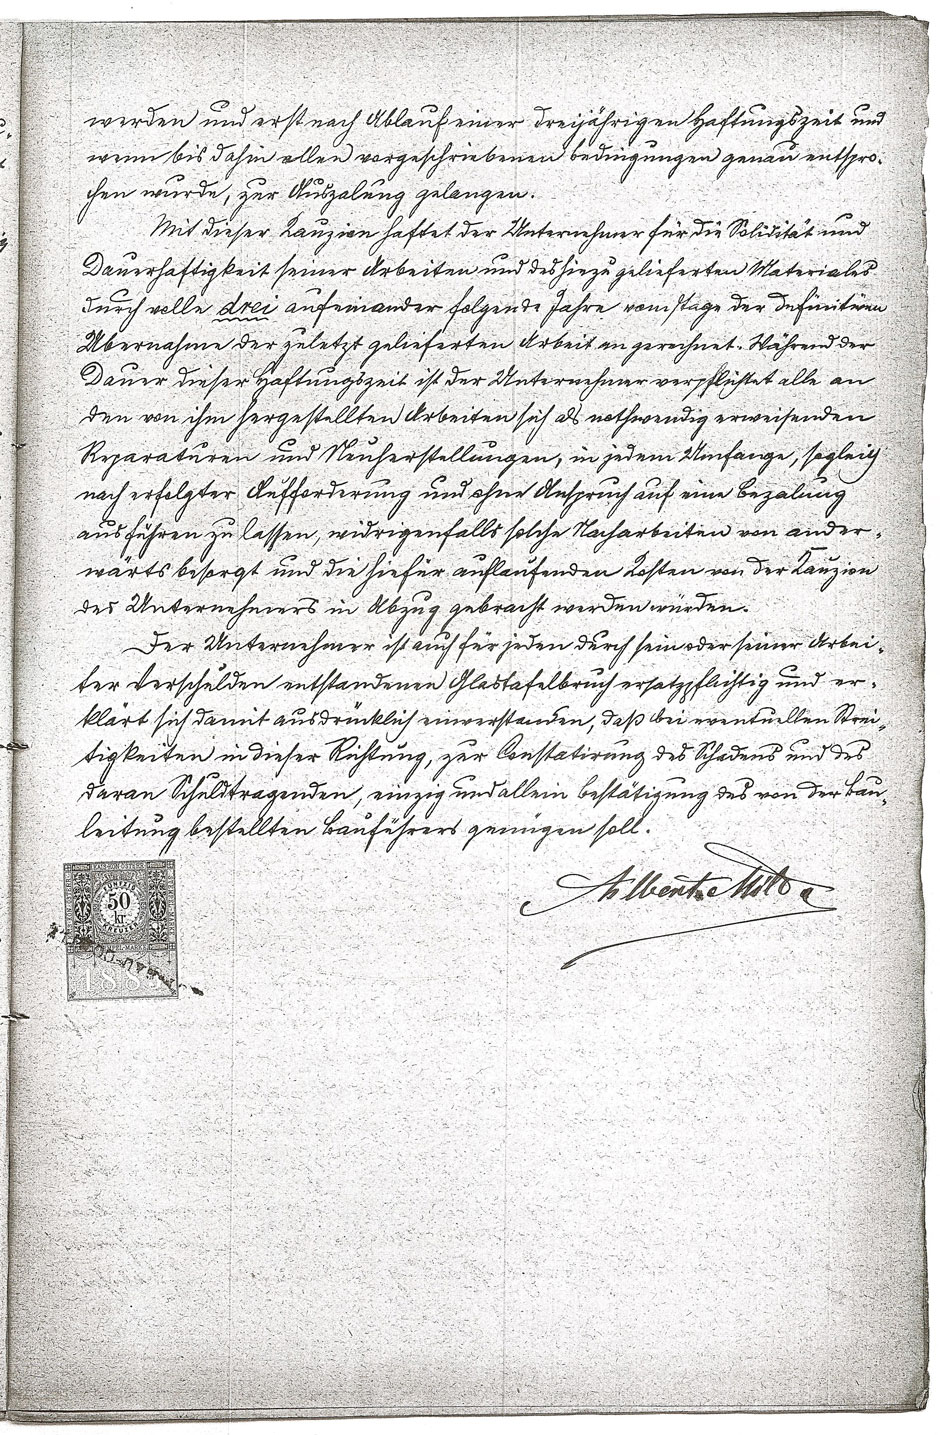 werden und erst nach Ablauf einer dreijährigen Haftungszeit und
wenn bis dahin allen vorgeschriebenen Bedingungen genau entspro-
chen wurde, zur Auszalung gelangen.
Mit dieser Kauzion haftet der Unternehmer für die Solidität und
Dauerhaftigkeit seiner Arbeiten und des hiezu gelieferten Materiales
durch volle drei aufeinander folgende Jahre vom Tage der definitiven
Übernahme der zuletzt gelieferten Arbeit an gerechnet. Während der
Dauer dieser Haftungszeit ist der Unternehmer verpflichtet alle an
den von ihm hergestellten Arbeiten sich als nothwendig erweisenden
Reparaturen und Neuherstellungen, in jedem Umfange, sogleich
nach erfolgter Aufforderung und ohne Anspruch auf eine Bezalung
ausführen zu lassen, widrigenfalls solche Nacharbeiten von ander-
wärts besorgt und die hiefür auflaufenden Kosten von der Kauzion
des Unternehmers in Abzug gebracht werden würden.
Der Unternehmer ist auch für jeden durch sein oder seiner Arbei-
ter Verschulden entstandenen Glastafelbruch ersatzpflichtig und er-
klärt sich damit ausdrücklich einverstanden, daß bei eventuellen Strei-
tigkeiten in dieser Richtung, zur Constatirung des Schadens und des
daran Schuldtragenden, einzig und allein Bestätigung des von der Bau-
leitung bestellten Bauführers genügen soll.
Albert Milde
FÜNFZIG
50
kr.
KREUZER